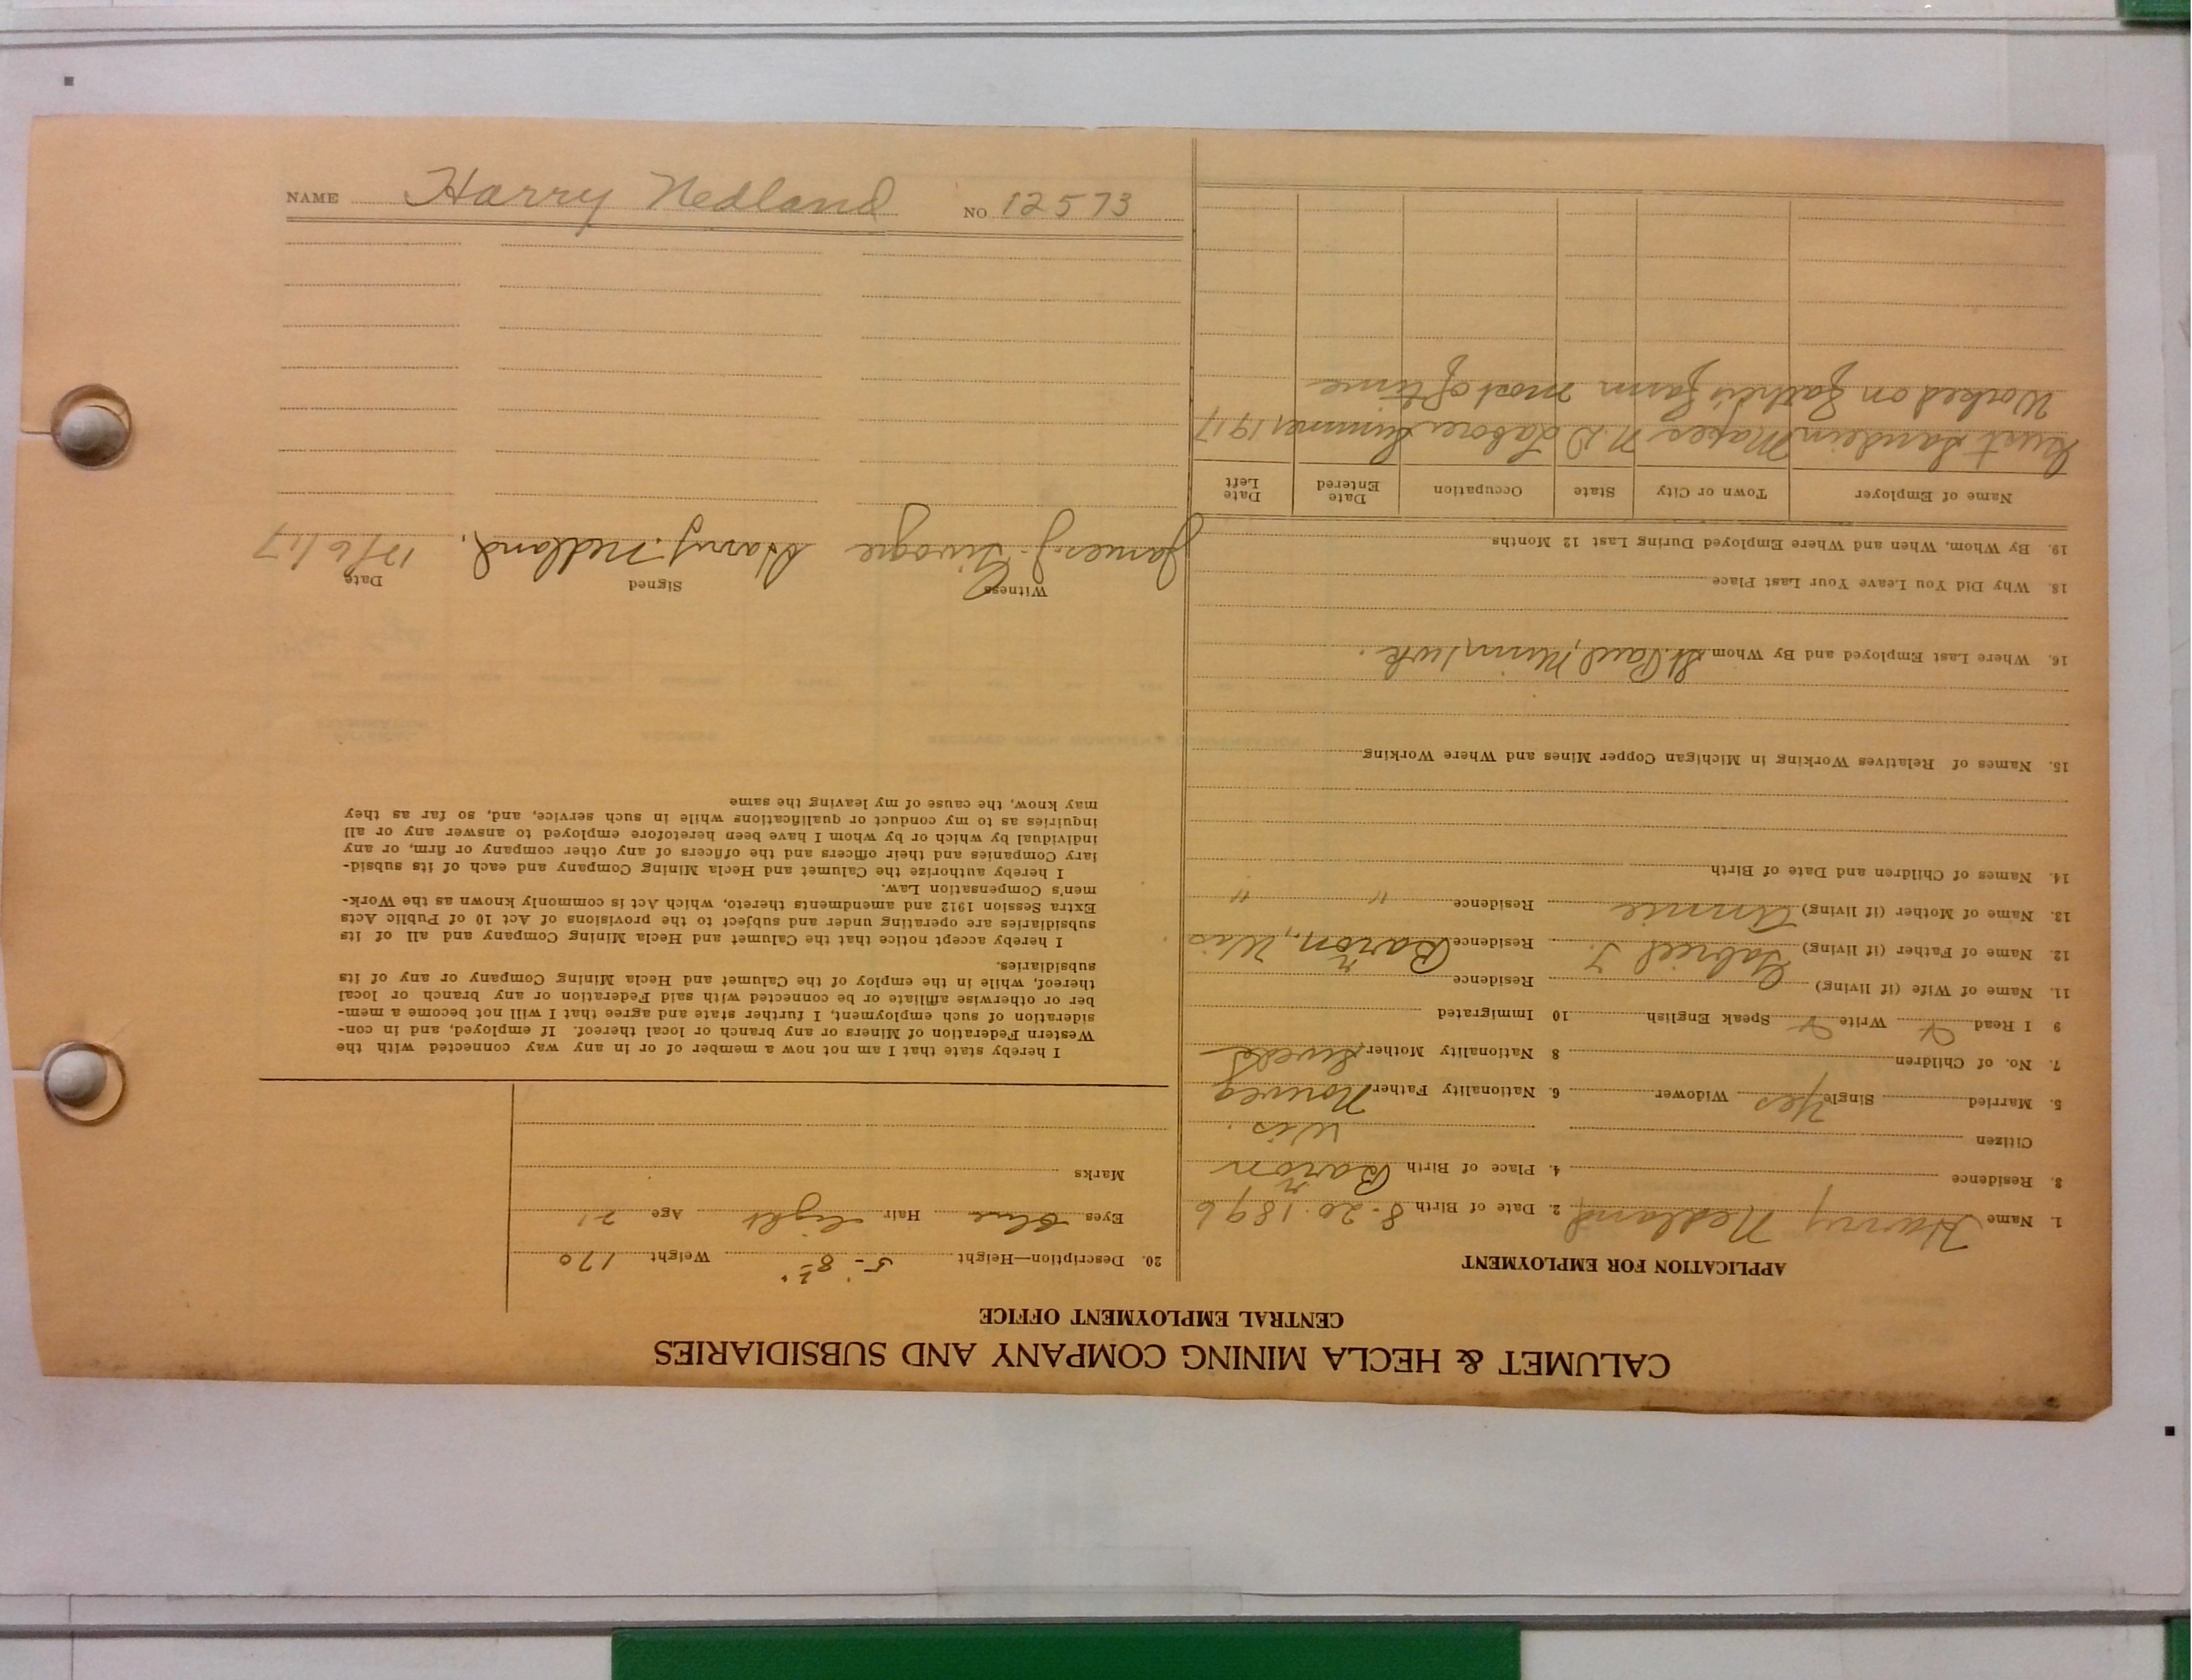 NAME Harry Nedland NO 12573
CALUMET & HECLA MINING COMPANY AND SUBSIDIARIES
CENTRAL EMPLOYMENT OFFICE
APPLICATION FOR EMPLOYMENT
1. Name Harry Nedland 2. Date of Birth 8-20-1896
3. Residence 4. Place of Birth Baron
r
Citizen Wis.
5. Married Single Yes Widower 6. Nationality Father Norweg
7. No. of Children 8 Nationality Mother Swede
9 I Read Write Speak English 10 Immigrated
11. Name of Wife (if living) Residence
12. Name of Father (if living) Gabriel T. Residence Baron, Wis
r
13. Name of Mother (if living) Annie Residence " "
14. Names of Children and Date of Birth
15. Names of Relatives Working in Michigan Copper Mines and Where Working
16. Where Last Employed and By Whom St. Paul, Minn, 1 wk.
18. Why Did You Leave Your Last Place
19. By Whom, When and Where Employed During Last 12 Months
Name of Employer Town or City State Occupation Date Entered Date Left
Mapes N.D Laborer Summer 1917
Worked on father's farm most of time
20. Description—Height 5-8½" Weight 170
Eyes blue Hair light Age 21
Marks
I hereby state that I am not now a member of or in any way connected with the
Western Federation of Miners or any branch or local thereof. If employed, and in con-
sideration of such employment, I further state and agree that I will not become a mem-
ber or otherwise affiliate or be connected with said Federation or any branch or local
thereof, while in the employ of the Calumet and Hecla Mining Company or any of its
subsidiaries.
I hereby accept notice that the Calumet and Hecla Mining Company and all of its
subsidiaries are operating under and subject to the provisions of Act 10 of Public Acts
Extra Session 1912 and amendments thereto, which Act is commonly known as the Work-
men's Compensation Law.
I hereby authorize the Calumet and Hecla Mining Company and each of its subsid-
iary Companies and their officers and the officers of any other company or firm, or any
individual by which or by whom I have been heretofore employed to answer any or all
inquiries as to my conduct or qualifications while in such service, and, so far as they
may know, the cause of my leaving the same
Witness Signed Date
James J. Harry Nedland, 12/6/17